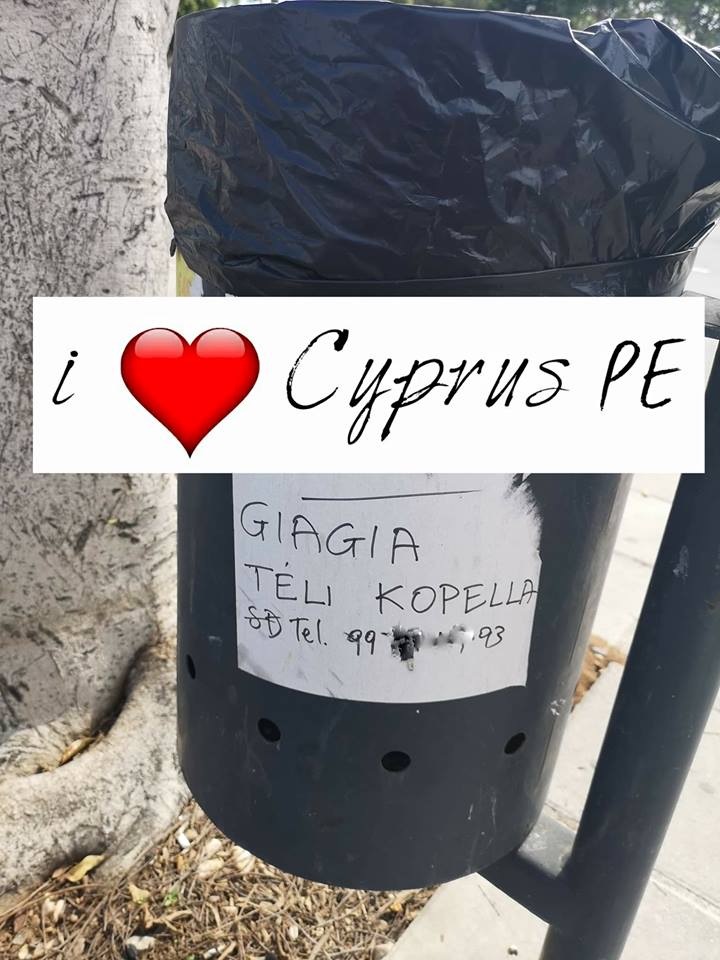 i ❤ Cyprus PE
GIAGIA
TÉLI KOPELLA
Tel. 99 93